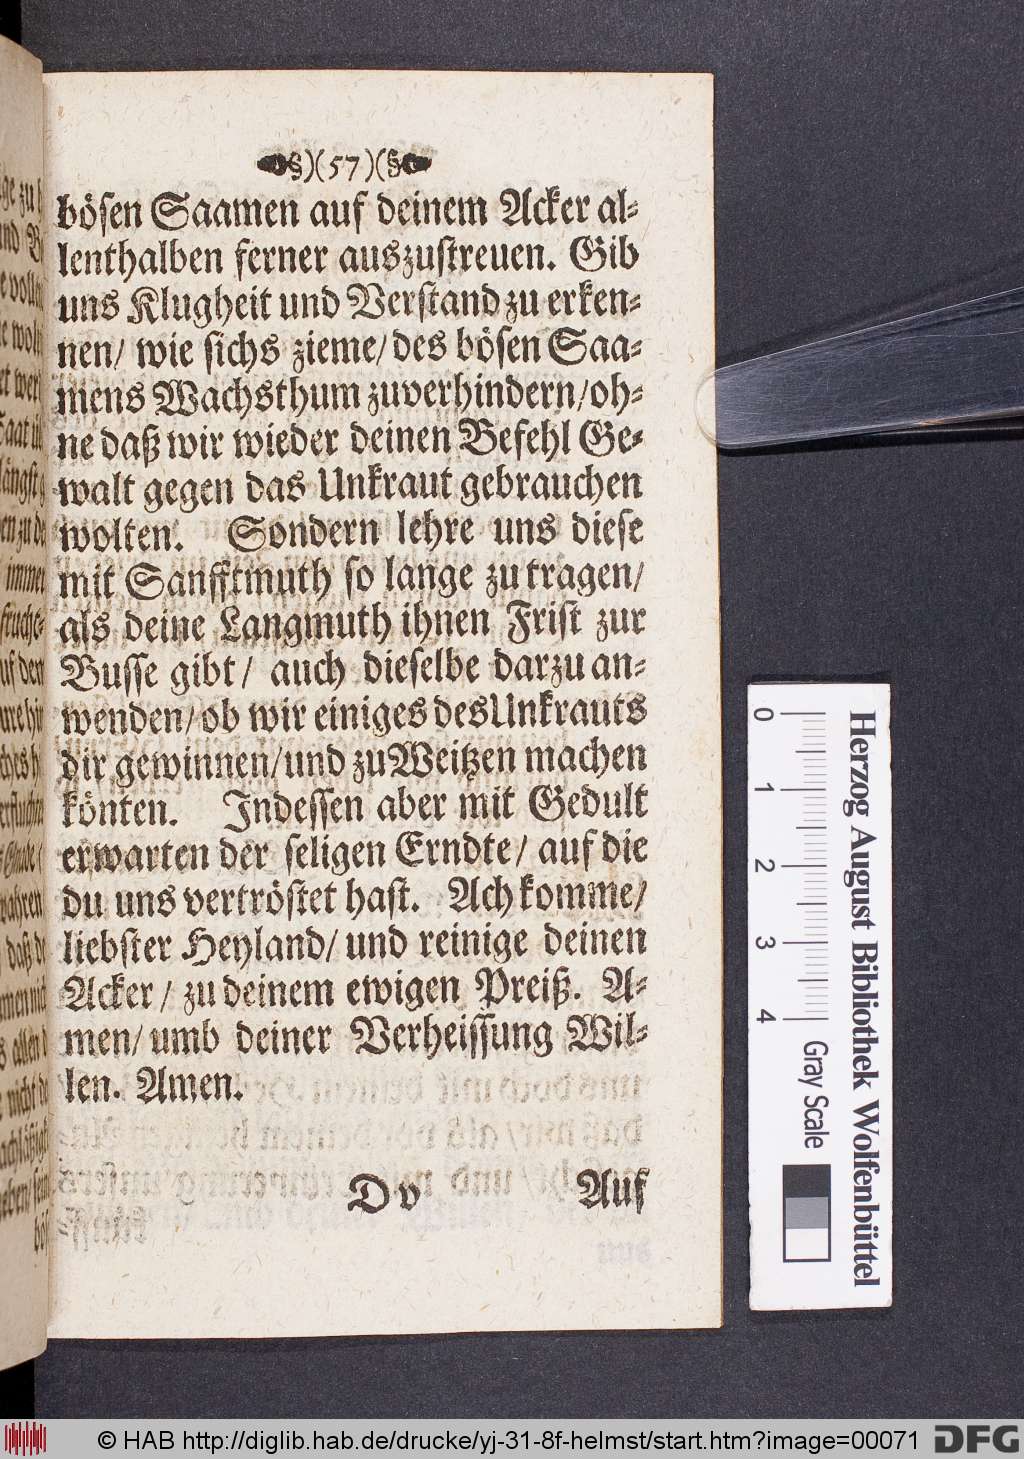 §)(57)(§
bösen Saamen auf deinem Acker al-
lenthalben ferner auszustreuen. Gib
uns Klugheit und Verstand zu erken-
nen/ wie sichs zieme/ des bösen Saa-
mens Wachsthum zuverhindern/ oh-
ne daß wir wieder deinen Befehl Ge-
walt gegen das Unkraut gebrauchen
wolten. Sondern lehre uns diese
mit Sanfftmuth so lange zu tragen/
als deine Langmuth ihnen Frist zur
Busse gibt/ auch dieselbe darzu an-
wenden/ ob wir einiges des Unkrauts
dir gewinnen/ und zu Weitzen machen
könten. Indessen aber mit Gedult
erwarten der seligen Erndte/ auf die
du uns vertröstet hast. Ach komme/
liebster Heyland/ und reinige deinen
Acker/ zu deinem ewigen Preiß. A-
men/ umb deiner Verheissung Wil-
len. Amen.
D v Auf
0 1 2 3 4 Gray Scale
Herzog August Bibliothek Wolfenbüttel
© HAB http://diglib.hab.de/drucke/yj-31-8f-helmst/start.htm?image=00071
DFG